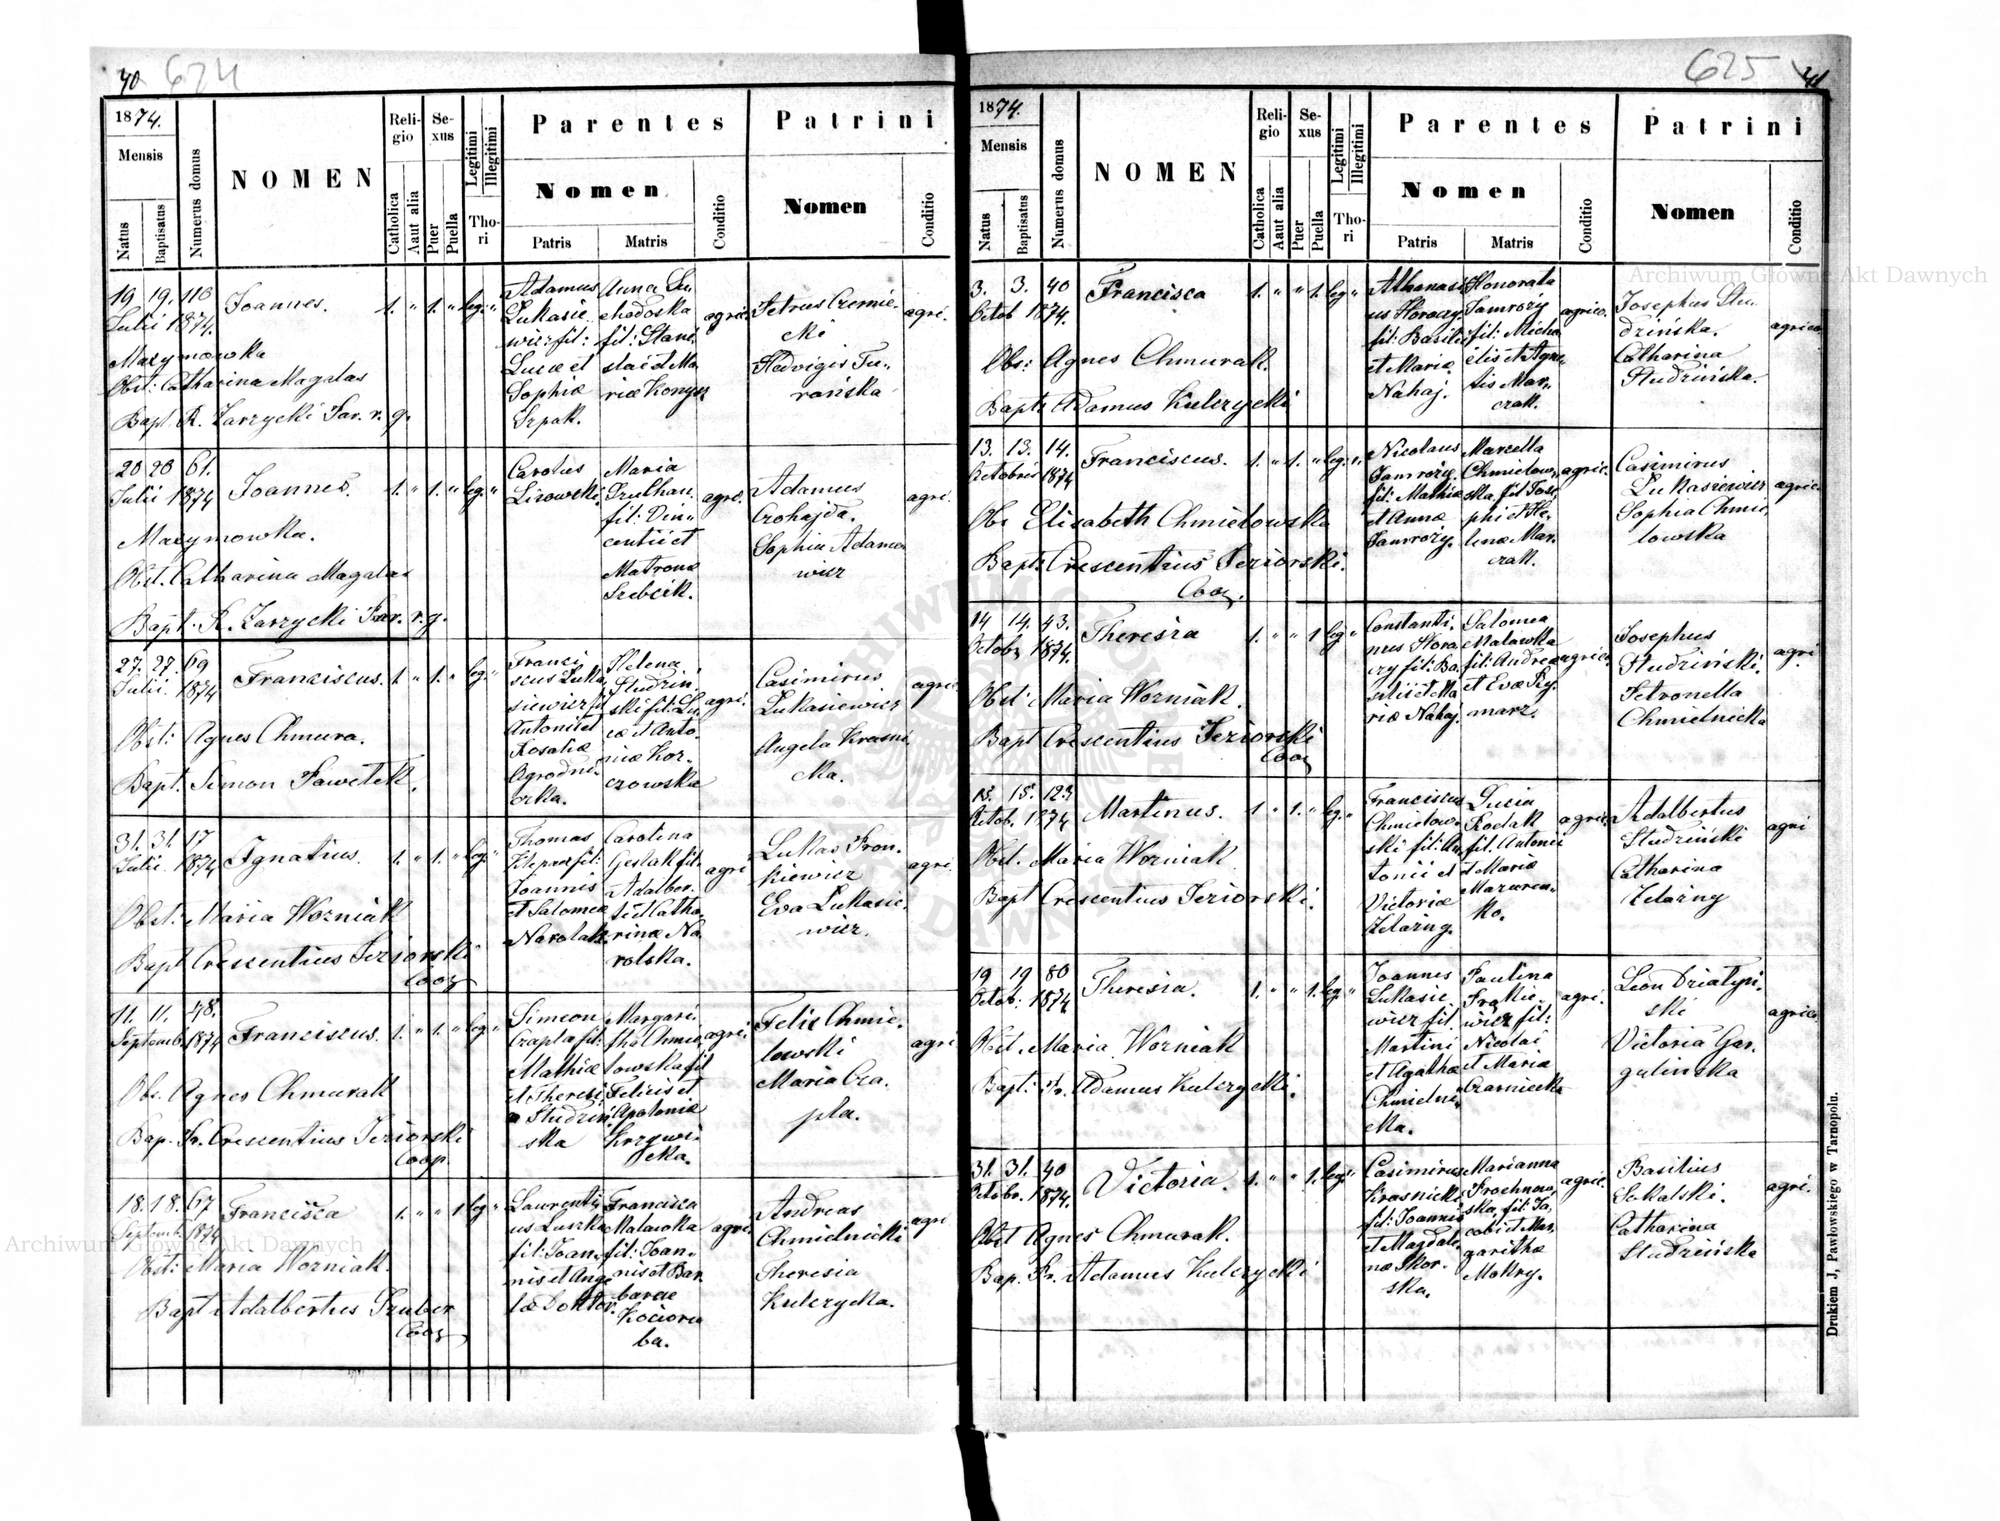 40 624
1874.
Mensis
Natus
Baptisatus
Numerus domus
NOMEN
Reli-
gio
Catholica
Aaut alia
Se-
xus
Puer
Puella
Legitimi
Illegitimi
Tho-
ri
Parentes
Nomen
Patris
Matris
Conditio
Patrini
Nomen
Conditio
19 19. 118
Julii 1874.
Joannes. 1. " 1. " leg: "
Maxymowka
Obst: Catharina Magalas
Bapt. R. Zarzycki Par. r. g.
Adamus
Lukasie
wicz fil:
Lucæ et
Sophiæ
Szpak.
Anna Lu
chodoska
fil: Stani
slai et Ma
riæ
agric.
Petrus Czernie-
cki
Hedvigis Tu-
rańska
agri.
20 20 61.
Julii 1874
Joannes. 1. " 1. " leg: "
Maxymowka.
Obst. Catharina Magalas
Bapt. R. Zarzycki Par. r. g.
Carolus
Lisowski.
Maria
fil: Vin-
centii et
Matronæ
agric.
Adamus
Czohajda.
Sophia Adamo
wicz
agri.
27. 27. 69
Julii 1874
Franciscus. 1. " 1. " leg: "
Obst: Agnes Chmura.
Bapt. Simon Pawełek.
Franci
scus Luka
siewicz fil
Antonii et
Rosaliæ
Ogrodni-
czka.
Helena
Studzin
ski fil: Lu
cæ et Anto-
niæ Kor-
czowska
agri.
Casimirus
Lukasiewicz
Angela Krasni
cka.
agric.
31. 31. 17
Julii. 1874
Ignatius. 1. " 1. " leg: "
Obst: Maria Wozniak
Bapt Crescentius Jeziorski
Coop
Thomas
fil:
Joannis
et Salomeæ
Carolina
Geslak fil.
Adalber.
ti et Catha.
rinæ Na
rolska.
agri
Lukas Fron-
kiewicz
Eva Lukasie.
wicz.
agri.
11. 11. 48.
Septemb. 1874
Franciscus. 1. " 1. " leg: "
Obs. Agnes Chmurak
Bap. Fr. Crescentius Jeziorski
Coop.
Simeon
Czapla fil:
Mathiæ
et Theresi
æ Studziń
ska
Margari-
tha Chmie
lowska fil
Felicis et
Apoloniæ
Krzywi-
cka.
agri.
Felix Chmie-
lowski
Maria Cza.
pla.
agri.
18. 18. 67
Septemb. 1874
Francisca 1. " " 1 leg "
Obst: Maria Wozniak.
Bapt Adalbertus Gruber
Coop
Laurenti
us Luszka
fil: Joan-
nis et Ange
læ Doktor.
Francisca
Malawka
fil: Joan-
nis et Bar
baræ
Kocioru
ba.
agri.
Andreas
Chmielnicki
Theresia
Kulczycka.
agri
625 41
1874.
Mensis
Natus
Baptisatus
Numerus domus
NOMEN
Reli-
gio
Catholica
Aaut alia
Se-
xus
Puer
Puella
Legitimi
Illegitimi
Tho-
ri
Parentes
Nomen
Patris
Matris
Conditio
Patrini
Nomen
Conditio
3. 3. 40
Octob 1874.
Francisca 1. " " 1. leg "
Obs: Agnes Chmurak.
Bapt: Adamus Kulczycki
Athanasi
us Horaczy.
fil: Basilii
et Mariæ
Nahaj.
Honorata
Jamroży
fil: Micha
elis et Agne-
tis Mar-
czak.
agrico.
Josephus Stu
dzińska.
Catharina
Studzińska.
agrico
13. 13. 14.
Octobris 1874
Franciscus. 1. " 1. " leg: "
Obs Elisabeth Chmielowska
Bapt: Crescentius Jeziorski.
Coop.
Nicolaus
Jamroży.
fil: Mathiæ
et Annæ
Jamroży.
Marcella
Chmielow-
ska. fil Jose
phi et He-
lenæ Mar-
czak.
agric.
Casimirus
Lukasiewicz
Sophia Chmie.
lowska
agric.
14 14. 43.
Octobr 1874.
Theresia 1. " " 1 leg "
Obst: Maria Wozniak.
Bapt Crescentius Jeziorski
Coop
Constanti-
nus Hora
czy fil: Ba-
silii et Ma
riæ Nahaj.
Salomea
Malawka
fil: Andreæ
et Evæ Ry-
marz.
agrico.
Josephus
Studziński.
Petronella
Chmielnicka
agri.
15. 15. 123
Octob. 1874
Martinus. 1. " 1. " leg. "
Obst. Maria Wozniak
Bapt Crescentius Jeziorski.
Franciscus
Chmielow-
ski fil: An
tonii et
Victoriæ
Zelazny.
Lucia
Rodak
fil. Antonii
et Mariæ
Mazuren-
ko.
agric.
Adalbertus
Studziński
Catharina
Zelazny
agri
19 19 80
Octob: 1874
Theresia. 1. " " 1. leg. "
Obst. Maria Wozniak
Bapt: Fr. Adamus Kulczycki.
Joannes
Lukasie
wicz fil.
Martini
et Agathæ
Chmielni-
cka.
Paulina
Frąkie-
wicz fil:
Nicolai
et Mariæ
Czarniecka
agri.
Leon Dziatyń.
ski
Victoria Gar.
gulinska
agrico.
31. 31. 40
Octobr. 1874.
Victoria. 1. " " 1. leg: "
Obst Agnes Chmurak.
Bap. Fr. Adamus Kulczycki
Casimirus
Krasnicki
fil: Joannis
et Magdale.
næ Skor.
ska.
Marianna
Prochnow-
ska, fil: Ja.
cobi et Mar.
garithæ
Mokry.
agric.
Basilius
Sakalski.
Catharina
Studzińska
agri.
Drukiem J, Pawłowskiego w Tarnopolu.
Archiwum Główne Akt Dawnych
Archiwum Główne Akt Dawnych
ARCHIWUM GŁÓWNE AKT DAWNYCH